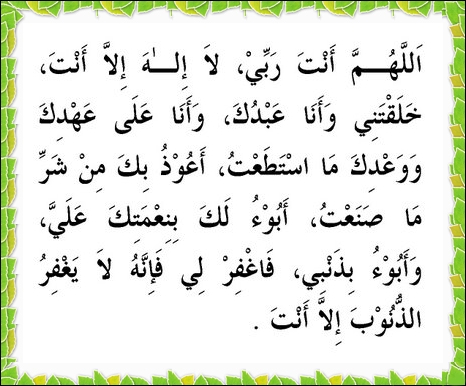 اَللَّهُـــمَّ أَنْتَ رَبِّيْ، لاَ إِلـٰهَ إِلاَّ أَنْتَ،
خَلَقْتَنِي وَأَنَا عَبْدُكَ، وَأَنَا عَلَى عَهْدِكَ
وَوَعْدِكَ مَا اسْتَطَعْتُ، أَعُوْذُ بِكَ مِنْ شَرِّ
مَا صَنَعْتُ، أَبُوْءُ لَكَ بِنِعْمَتِكَ عَلَيَّ،
وَأَبُوْءُ بِذَنْبِي، فَاغْفِرْ لِي فَإِنَّهُ لاَ يَغْفِرُ
الذُّنُوْبَ إِلاَّ أَنْتَ .